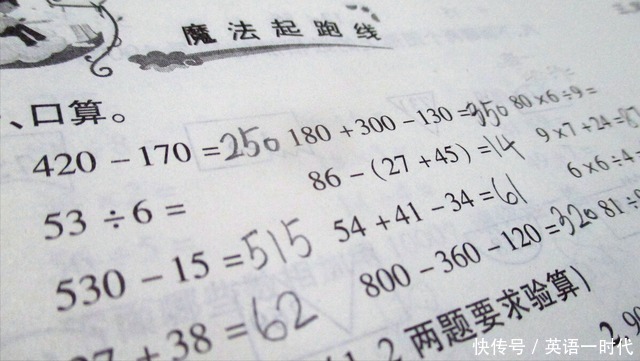 魔法起跑线
、口算。
420 − 170 = 250 180 + 300 − 130 = 350 80 × 6 ÷ 9 =
53 ÷ 6 = 86 − (27 + 45) = 14 9 × 7 + 24 =
530 − 15 = 515 54 + 41 − 34 = 61 6 × 6 ÷ 4
+ 38 = 62 800 − 360 − 120 = 320 81 ÷
两题要求验算)
快传号 / 英语一时代